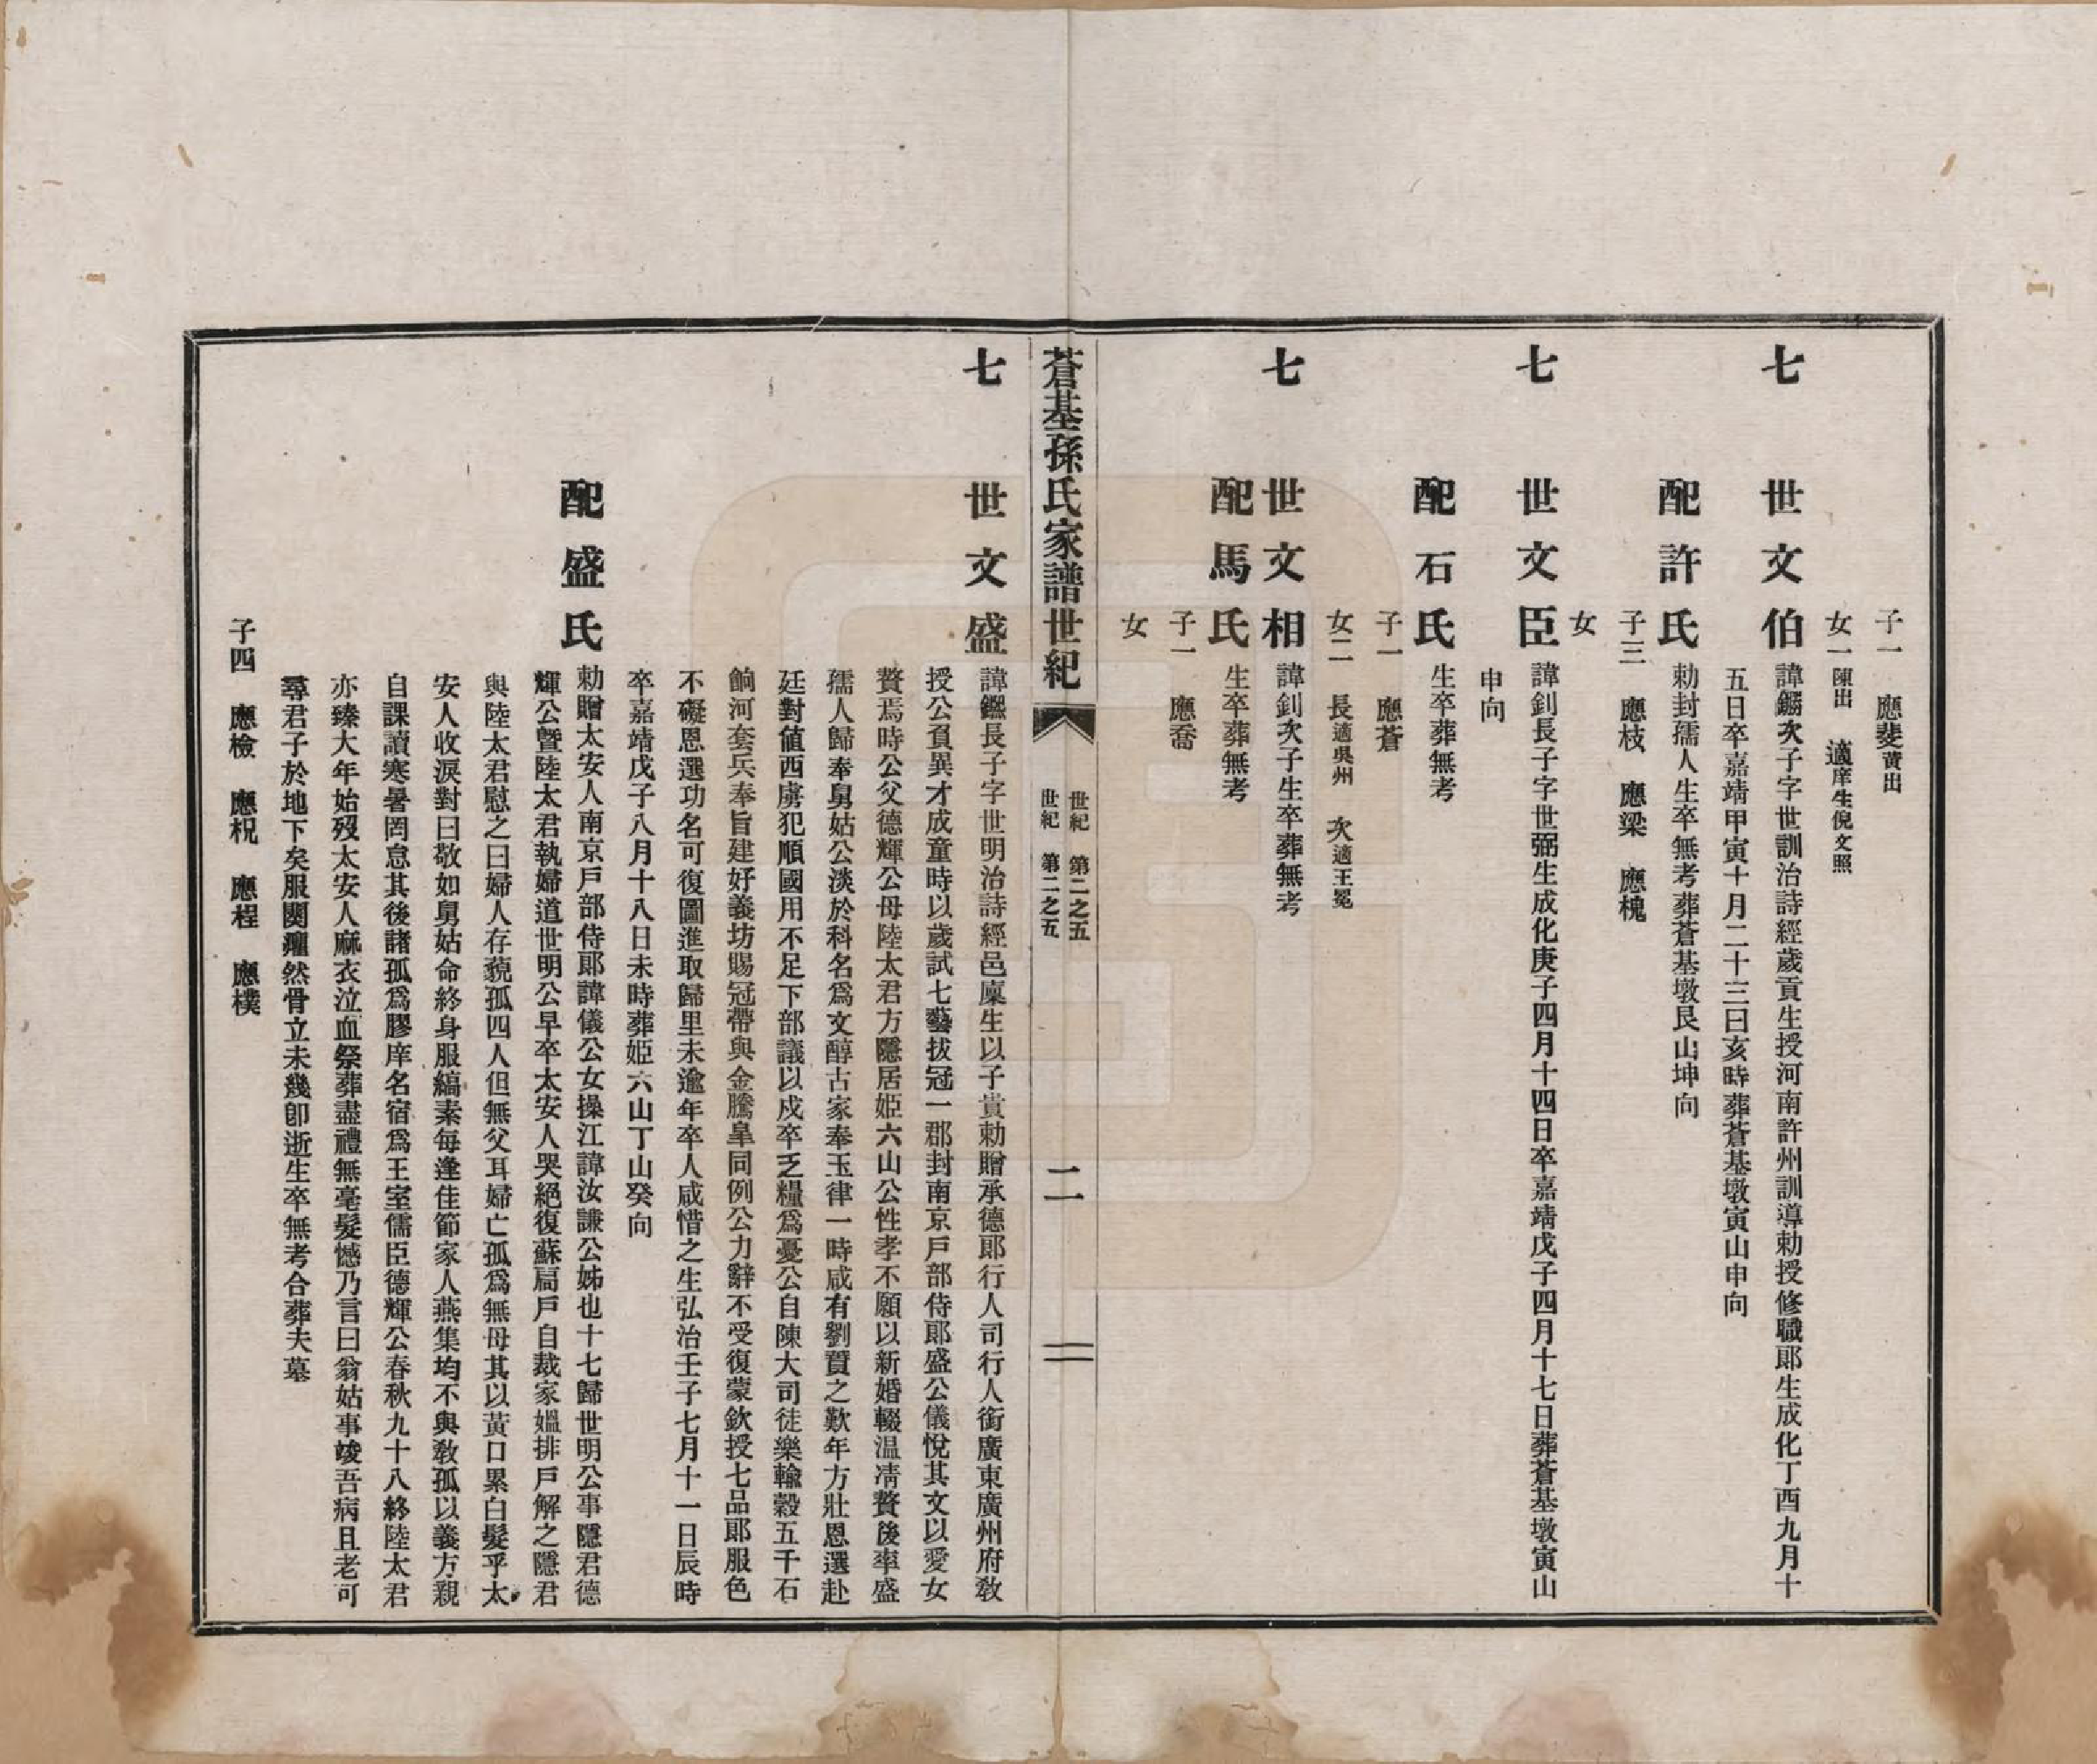 子一　應斐黃出
女一陳出　適庠生倪文照
七　世文伯　諱鑼次子字世訓治詩經歲貢生授河南許州訓導勅授修職郎生成化丁酉九月十
五日卒嘉靖甲寅十月二十三日亥時葬蒼基墩寅山申向
配許氏　勅封孺人生卒無考葬蒼基墩艮山坤向
子三　應枝　應梁　應槐
女
七　世文臣　諱釗長子字世弼生成化庚子四月十四日卒嘉靖戊子四月十七日葬蒼基墩寅山
申向
配石氏　生卒葬無考
子一　應蒼
女二　長適吳州　次適王冕
七　世文相　諱釗次子生卒葬無考
配馬氏　生卒葬無考
子一　應喬
女
蒼基孫氏家譜世紀　世紀　第二之五　世紀　第二之五　二
七　世文盛　諱鑼長子字世明治詩經邑廩生以子貴勅贈承德郎行人司行人銜廣東廣州府教
授公負異才成童時以歲試七藝拔冠一郡封南京戶部侍郎盛公儀悅其文以愛女
贅焉時公父德輝公母陸太君方隱居姫六山公性孝不願以新婚輟温凊贅後率盛
孺人歸奉舅姑公淡於科名爲文醇古家奉玉律一時咸有劉蕡之歎年方壯恩選赴
廷對値西虜犯順國用不足下部議以戍卒乏糧爲憂公自陳大司徒樂輸穀五千石
餉河套兵奉旨建好義坊賜冠帶與金騰皐同例公力辭不受復蒙欽授七品郎服色
不礙恩選功名可復圖進取歸里未逾年卒人咸惜之生弘治壬子七月十一日辰時
卒嘉靖戊子八月十八日未時葬姫六山丁山癸向
配盛氏　勅贈太安人南京戶部侍郎諱儀公女操江諱汝謙公姊也十七歸世明公事隱君德
輝公曁陸太君執婦道世明公早卒太安人哭絕復蘇扃戶自裁家媼排戶解之隱君
與陸太君慰之曰婦人存藐孤四人但無父耳婦亡孤爲無母其以黃口累白髮乎太
安人收淚對曰敬如舅姑命終身服縞素每逢佳節家人燕集均不與教孤以義方親
自課讀寒暑罔怠其後諸孤爲膠庠名宿爲王室儒臣德輝公春秋九十八終陸太君
亦臻大年始歿太安人麻衣泣血祭葬盡禮無毫髮憾乃言曰翁姑事竣吾病且老可
尋君子於地下矣服闋癯然骨立未幾卽逝生卒無考合葬夫墓
子四　應檢　應柷　應程　應樸